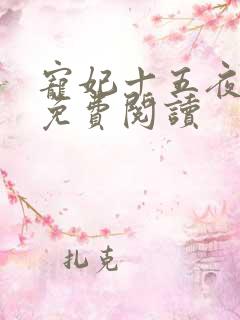 寵妃十五夜
免費閱讀
扎克